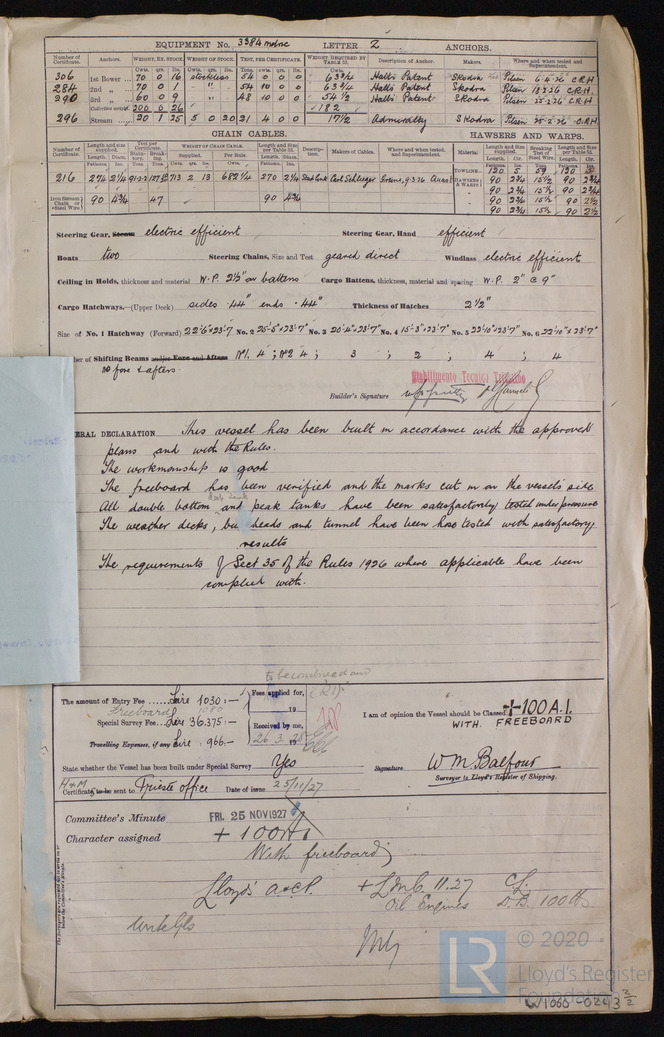 EQUIPMENT No. 3384 LETTER Z ANCHORS.
Number of Certificate. Anchors. WEIGHT, EX. STOCK. WEIGHT OF STOCK. TEST, PER CERTIFICATE. WEIGHT REQUIRED BY TABLE 31. Description of Anchor. Makers. Where and when tested and Superintendent.
306 1st Bower 70 0 16 stockless 54 0 0 63¾ Hall's Patent Skodra Pilsen 6.4.26 C.R.H
284 2nd " 70 0 1 " 54 10 0 0 63¾ Hall's Patent Skodra Pilsen 18.2.26 C.R.H.
290 3rd " 60 0 9 " 48 10 0 0 54½ Hall's Patent Skodra Pilsen 25.2.26 C.R.H
Collective weight 200 0 26 182
296 Stream 20 1 25 5 0 20 21 4 0 0 17½ Admiralty Skodra Pilsen 25.2.26 C.R.H.
CHAIN CABLES. HAWSERS AND WARPS.
Number of Certificate. Length and size supplied. Test per Certificate. WEIGHT OF CHAIN CABLE. Length and size per Table 31. Description. Makers of Cables. Where and when tested, and Superintendent. Material. Length and size supplied. Breaking Test of Steel Wire. Length and size per Table 31.
216 274 2¼ 713 2 13 682¼ 270 2¼ Stud Link Carl Schlieper
TOWLINE 120 5 59 120
HAWSERS & WARPS 90 2¾ 15½ 90 2¾
90 2¾ 15½ 90 2¾
Iron Stream Chain or Steel Wire 90 4¾ 47 90 4¾ 90 2¾ 15½ 90 2½
90 2¾ 15½ 90 2½
Steering Gear, Steam electric efficient Steering Gear, Hand efficient
Boats two Steering Chains, Size and Test geared direct Windlass electric efficient
Ceiling in Holds, thickness and material W.P. 2½" on battens Cargo Battens, thickness, material and spacing W.P. 2" @ 9"
Cargo Hatchways.—(Upper Deck) sides 44" ends 44" Thickness of Hatches 2½"
Size of No. 1 Hatchway (Forward) 22'6"x23'7 No. 2 25'-5"x23'7" No. 3 20'-4"x23'7" No. 4 15'-3"x23'7" No. 5 22'10"x23'7" No. 6 22'10"x23'7"
of Shifting Beams and/or Fore and Afters No 1. 4 ; No 2 4 ; 3 ; 2 ; 4 ; 4
no fore & afters
Stabilimento Tecnico Triestino
Builder's Signature
GENERAL DECLARATION This vessel has been built in accordance with the approved
plans and with the Rules.
The workmanship is good
The freeboard has been verified and the marks cut in on the vessel's side
All double bottom and peak tanks have been satisfactorily tested under pressure
The weather decks, bulkheads and tunnel have been hose tested with satisfactory
results
The requirements of Sect 35 of the Rules 1926 where applicable have been
complied with.
The amount of Entry Fee Lire 1030:— Fees applied for,
Freeboard 1080 19
Special Survey Fee Lire 36.375:— Received by me,
Travelling Expenses, if any Lire 966.— 26.3.28
I am of opinion the Vessel should be Classed +100 A.I.
WITH FREEBOARD
State whether the Vessel has been built under Special Survey Yes
Signature W M Balfour
Surveyor to Lloyd's Register of Shipping.
H & M Certificate to be sent to Trieste office Date of issue 25/11/27
Committee's Minute FRI. 25 NOV 1927
Character assigned + 100 A1
With freeboard
Lloyd's A & C.P. + LMC 11.27 C.L.
Oil Engines D.B. 100 lb
© 2020
LR
Lloyd's Register
Foundation
W1060-0213 2/2